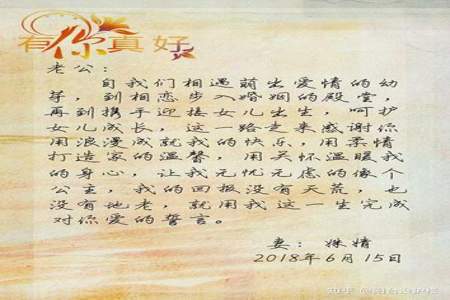 有你真好
老公：
自我们相遇萌生爱情的幼
芽，到相恋步入婚姻的殿堂，
再到携手迎接女儿出生，呵护
女儿成长，这一路走来感谢你
用浪漫成就我的快乐，用柔情
打造家的温馨，用关怀温暖我
的身心，让我无忧无虑的像个
公主，我的回报没有天荒，也
没有地老，就用我这一生完成
对你爱的誓言。
妻：姝婧
2018年6月15日
知乎